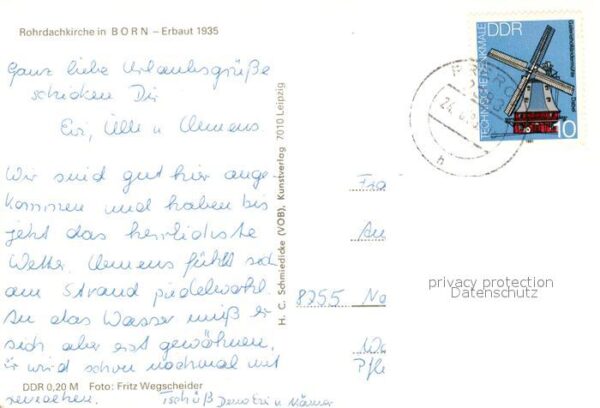 Rohrdachkirche in BORN – Erbaut 1935
Ganz liebe Urlaubsgrüße
schicken Dir
Evi, Ulli u Clemens
Wir sind gut hier ange-
kommen und haben bis
jetzt das herrlichste
Wetter. Clemens fühlt sich
am Strand pudelwohl.
An das Wasser muß er
sich aber erst gewöhnen.
Er wird schon nochmal mit
Tschüß
DDR 0,20 M Foto: Fritz Wegscheider
H. C. Schmiedicke (VOB), Kunstverlag 7010 Leipzig
TECHNISCHE DENKMALE
DDR
10
Fra
An
8255 No
Pfle
privacy protection
Datenschutz